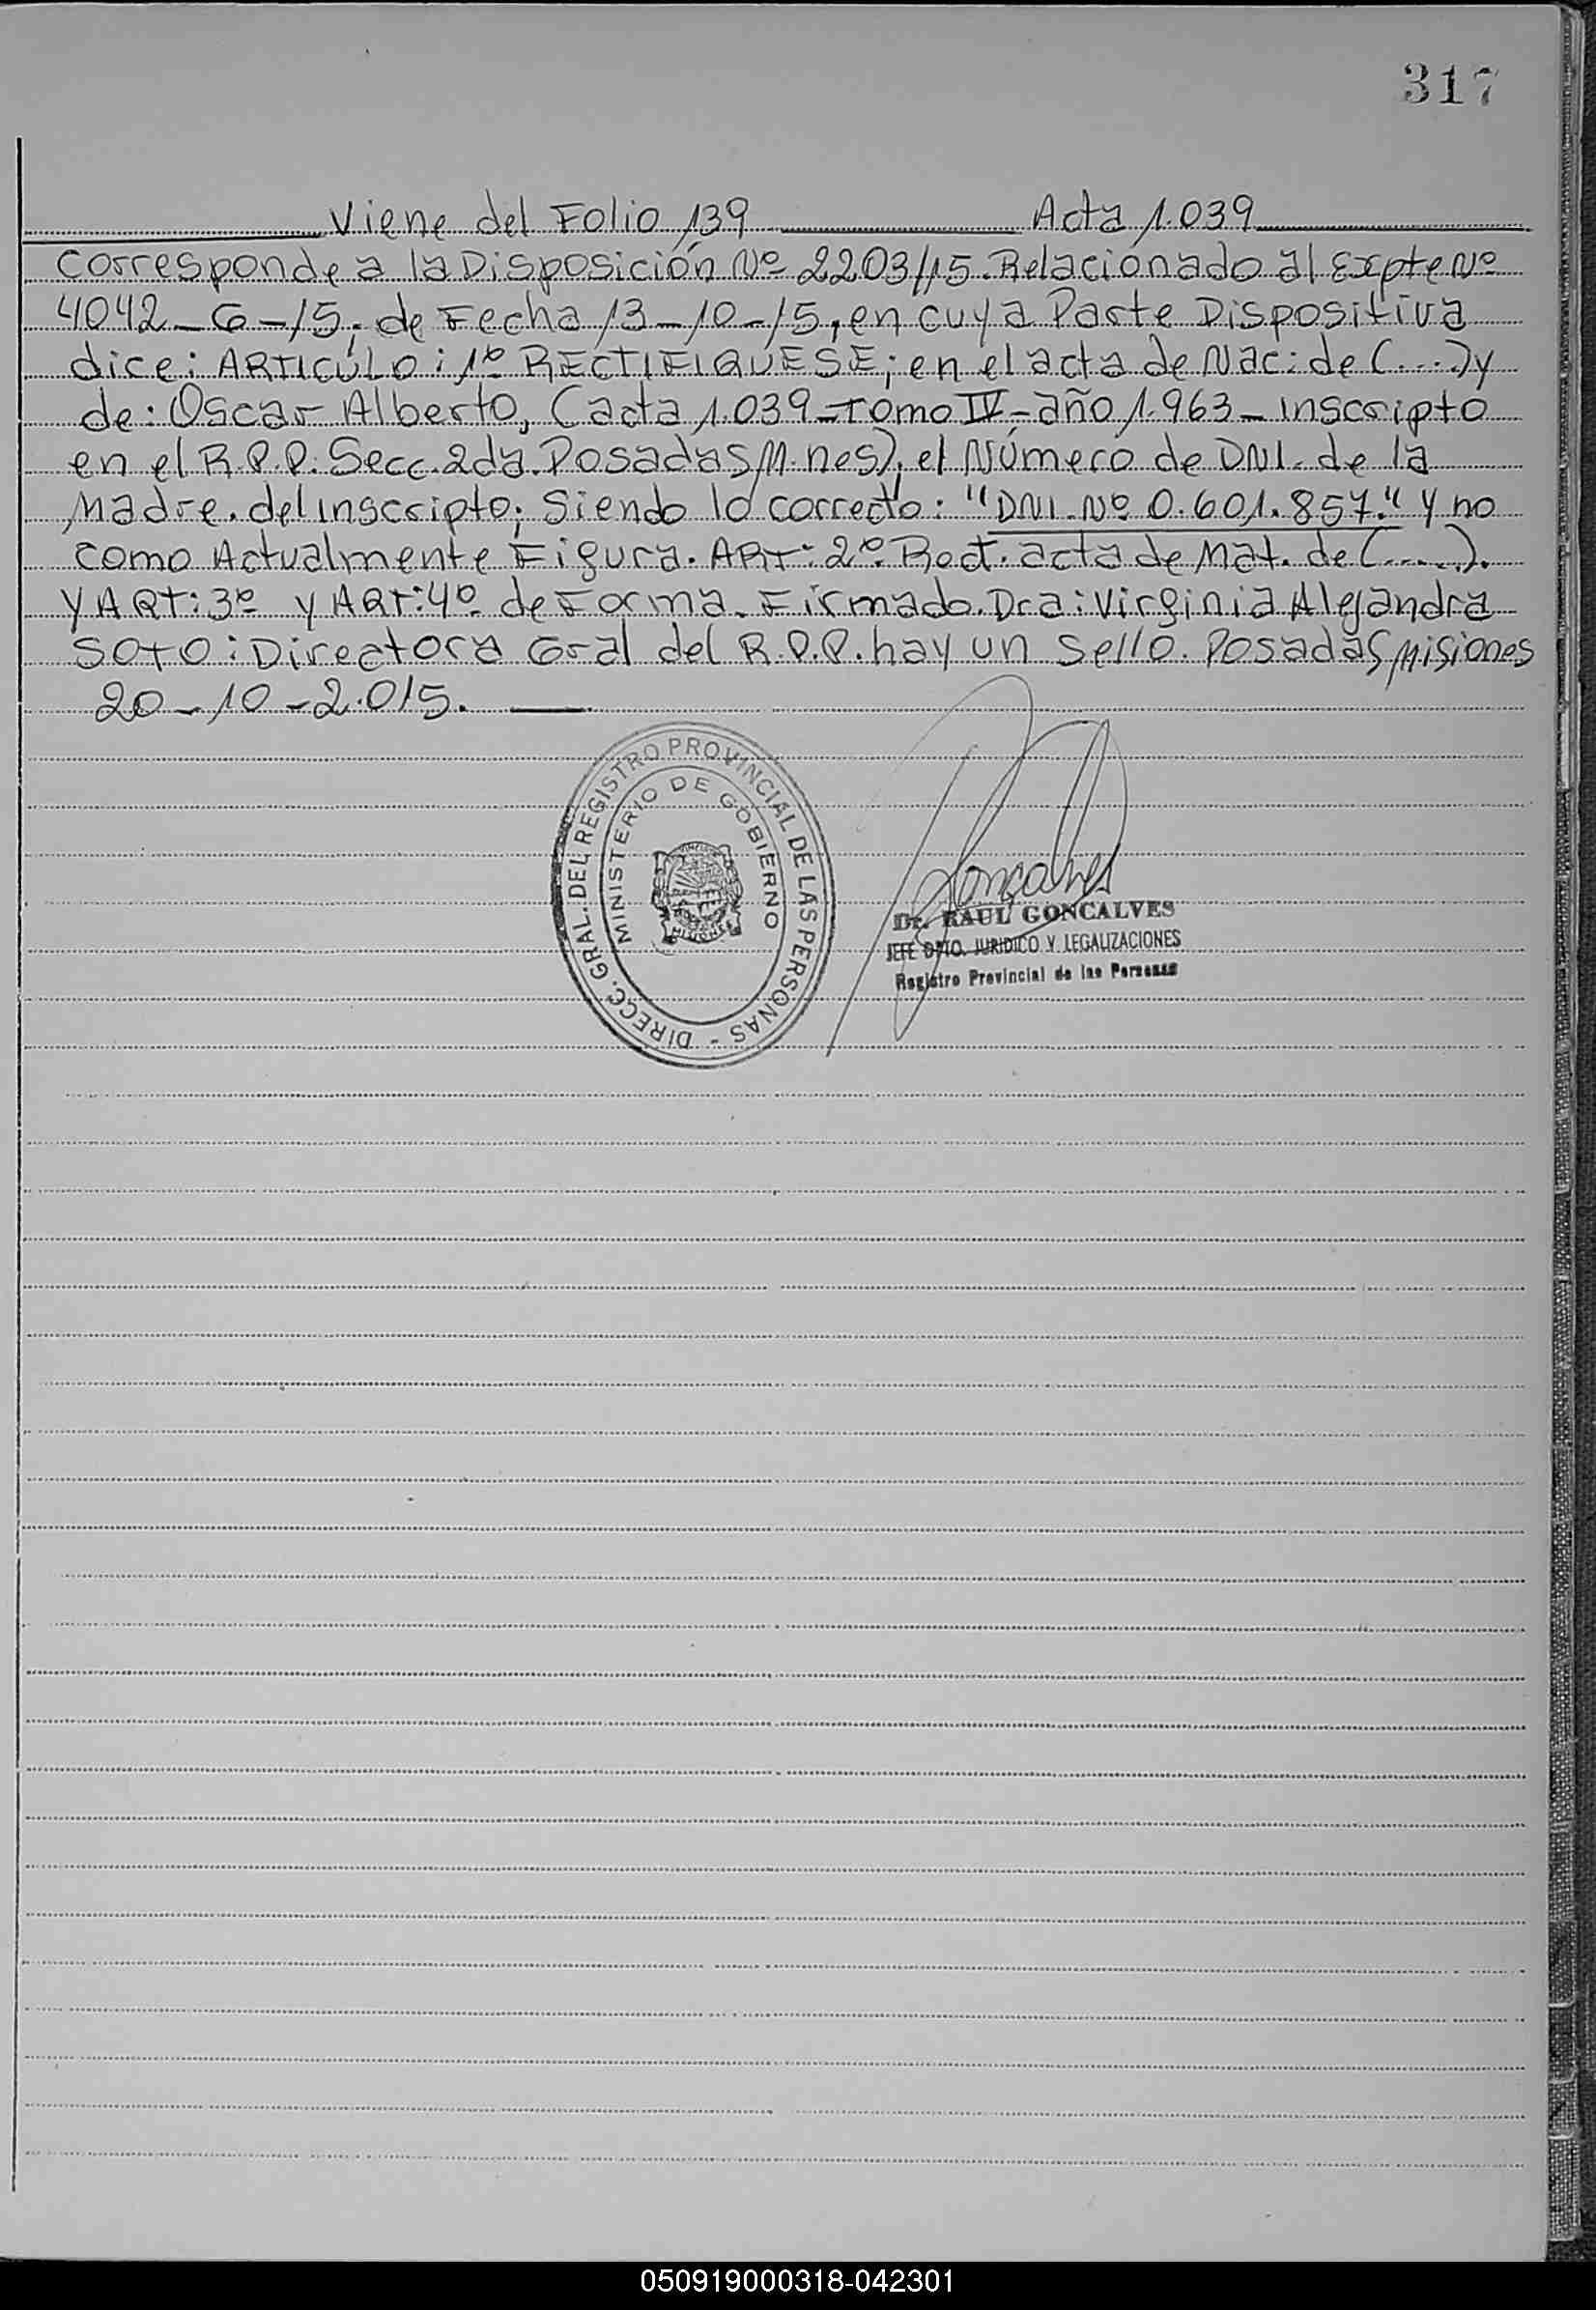 317
Viene del Folio 139 Acta 1.039
Corresponde a la Disposición Nº 2203/15. Relacionado al Expte Nº
4042-G-15, de Fecha 13-10-15, en cuya Parte Dispositiva
dice: ARTICÚLO: 1º RECTIFIQUESE; en el acta de Nac: de (....) y
de: Oscar Alberto, (acta 1.039-Tomo IV-año 1.963- inscripto
en el R.P.P. Secc. 2da. Posadas M.nes), el Número de DNI. de la
Madre. del inscripto; Siendo lo correcto: "DNI. Nº 0.601.857." y no
como Actualmente Figura. ART: 2º Rect. acta de Mat. de (......).
Y ART: 3º y ART: 4º de Forma. Firmado. Dra: Virginia Alejandra
SOTO: Directora Gral del R.P.P. hay un Sello. Posadas Misiones
20-10-2.015.
DIRECC. GRAL. DEL REGISTRO PROVINCIAL DE LAS PERSONAS -
MINISTERIO DE GOBIERNO
MISIONES
Goncalves
Dr. RAUL GONCALVES
JEFE DPTO. JURIDICO Y LEGALIZACIONES
Registro Provincial de las Personas
050919000318-042301